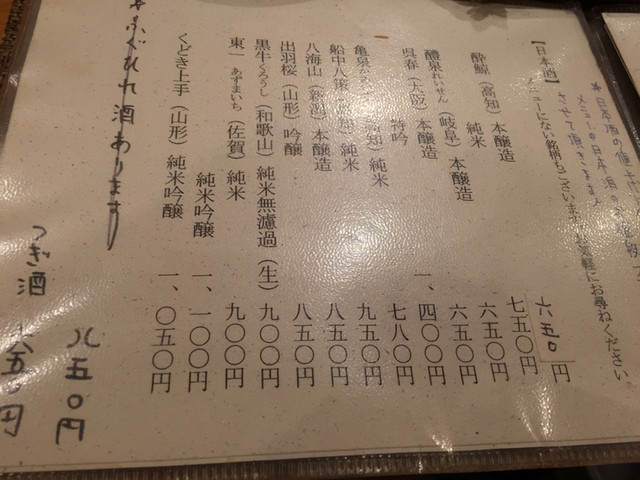 ＊日本酒の値上
メニューの日本酒の
させて頂きます。
【日本酒】
メニューにない銘柄もございます。お気軽にお尋ねください。
酔鯨（高知）本醸造 六五〇円
純米 七五〇円
醴泉れいせん（岐阜）本醸造 六五〇円
呉春（大阪）本醸造 六五〇円
特吟 一、四〇〇円
亀泉 （高知）純米 七八〇円
船中八策（高知）純米 九五〇円
八海山（新潟）本醸造 八五〇円
出羽桜（山形）吟醸 八五〇円
黒牛くろうし（和歌山）純米無濾過（生） 九〇〇円
東一 あずまいち（佐賀）純米 九〇〇円
純米吟醸 一、一〇〇円
くどき上手（山形）純米吟醸 一、〇五〇円
ひれ酒あります
八五〇円
つぎ酒 六五〇円